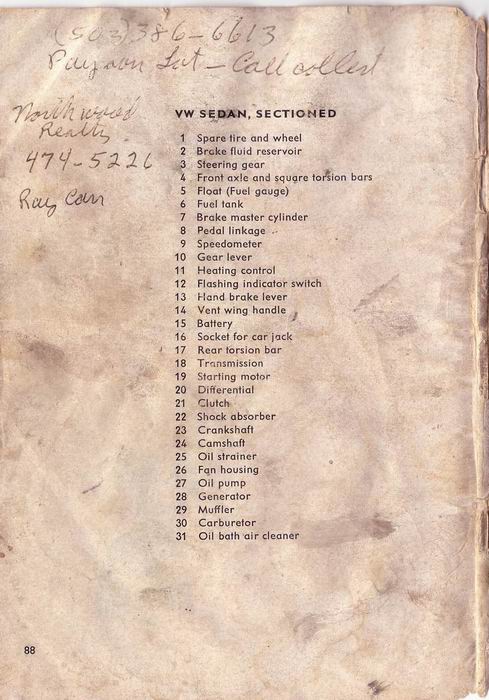 (503) 386-6613
Sat - Call collect
Northwood
Realty
474-5226
Ray Carr
VW SEDAN, SECTIONED
1 Spare tire and wheel
2 Brake fluid reservoir
3 Steering gear
4 Front axle and square torsion bars
5 Float (Fuel gauge)
6 Fuel tank
7 Brake master cylinder
8 Pedal linkage
9 Speedometer
10 Gear lever
11 Heating control
12 Flashing indicator switch
13 Hand brake lever
14 Vent wing handle
15 Battery
16 Socket for car jack
17 Rear torsion bar
18 Transmission
19 Starting motor
20 Differential
21 Clutch
22 Shock absorber
23 Crankshaft
24 Camshaft
25 Oil strainer
26 Fan housing
27 Oil pump
28 Generator
29 Muffler
30 Carburetor
31 Oil bath air cleaner
88